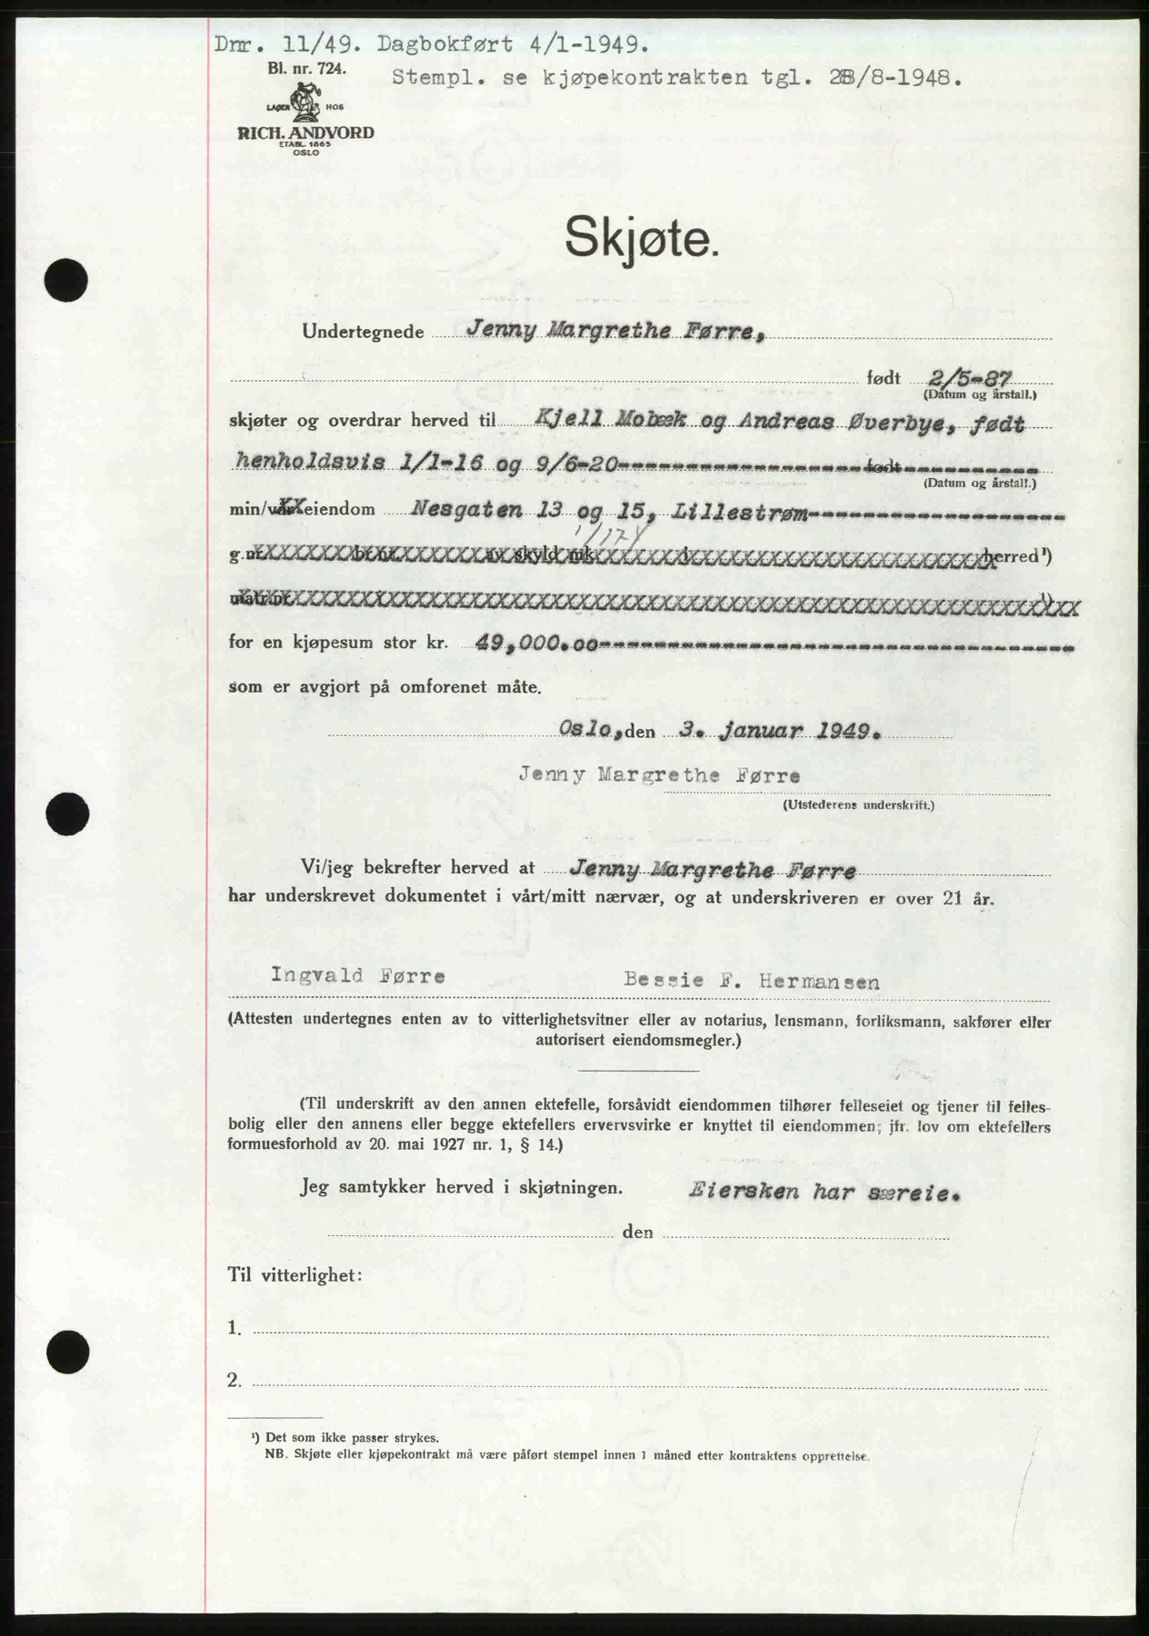 Dnr. 11/49. Dagbokført 4/1-1949.
Bl. nr. 724.
Stempl. se kjøpekontrakten tgl. 28/8-1948.
LAGER HOS
RICH. ANDVORD
ETABL. 1865
OSLO
Skjøte.
Undertegnede Jenny Margrethe Førre,
født 2/5-87
(Datum og årstall.)
skjøter og overdrar herved til Kjell Mobæk og Andreas Øverbye, født
henholdsvis 1/1-16 og 9/6-20 født
(Datum og årstall.)
min/vår eiendom Nesgaten 13 og 15, Lillestrøm
g.nr. br.nr. av skyld mk. i herred¹)
matr.nr. ¹)
for en kjøpesum stor kr. 49,000.00
som er avgjort på omforenet måte.
Oslo, den 3. januar 1949.
Jenny Margrethe Førre
(Utstederens underskrift.)
Vi/jeg bekrefter herved at Jenny Margrethe Førre
har underskrevet dokumentet i vårt/mitt nærvær, og at underskriveren er over 21 år.
Ingvald Førre Bessie F. Hermansen
(Attesten undertegnes enten av to vitterlighetsvitner eller av notarius, lensmann, forliksmann, sakfører eller
autorisert eiendomsmegler.)
(Til underskrift av den annen ektefelle, forsåvidt eiendommen tilhører felleseiet og tjener til felles-
bolig eller den annens eller begge ektefellers ervervsvirke er knyttet til eiendommen; jfr. lov om ektefellers
formuesforhold av 20. mai 1927 nr. 1, § 14.)
Jeg samtykker herved i skjøtningen. Eiersken har særeie.
den
Til vitterlighet:
1.
2.
¹) Det som ikke passer strykes.
NB. Skjøte eller kjøpekontrakt må være påført stempel innen 1 måned etter kontraktens opprettelse.